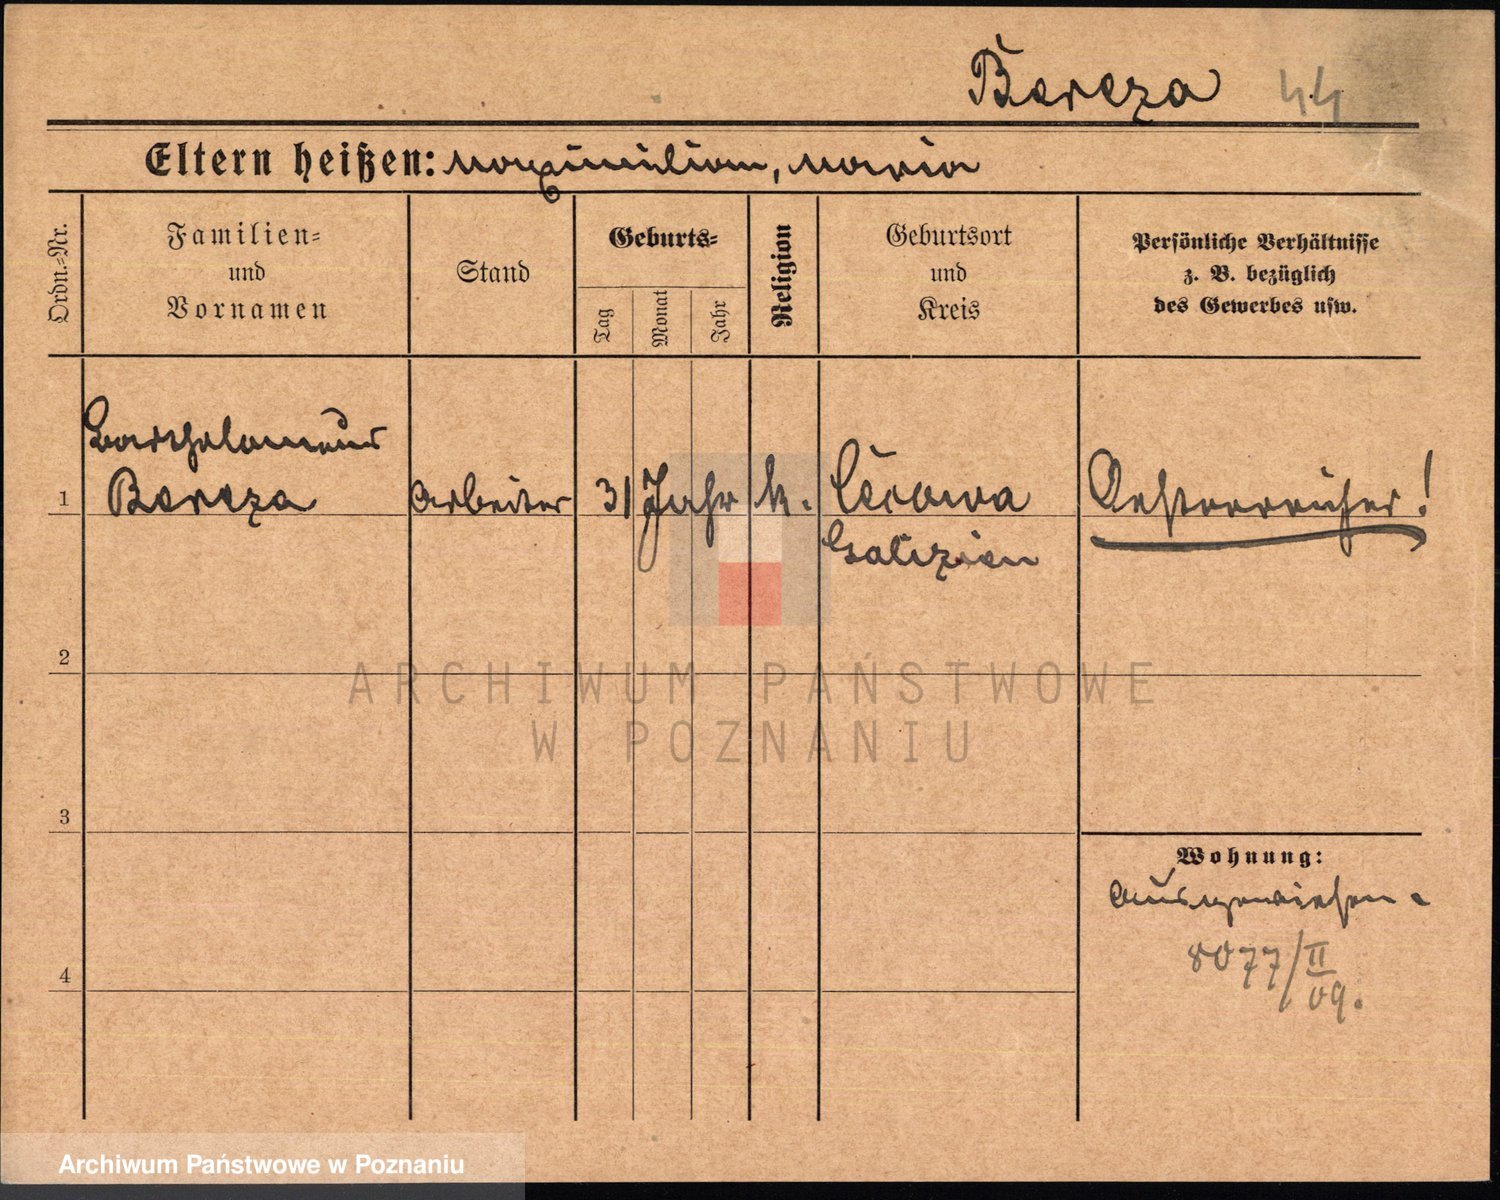 Bereza 44
Eltern heißen: Maximilian, Maria
Ordn.-Nr.
Familien-
und
Vornamen
Stand
Geburts-
Tag
Monat
Jahr
Religion
Geburtsort
und
Kreis
Persönliche Verhältnisse
z. B. bezüglich
des Gewerbes usw.
Bartholomeus
1 Bereza Arbeiter 31 Jahr k. Oesterreicher!
Galizien
2
ARCHIWUM PAŃSTWOWE
W POZNANIU
3
Wohnung:
Ausgewiesen.
4
8077/II
09.
Archiwum Państwowe w Poznaniu